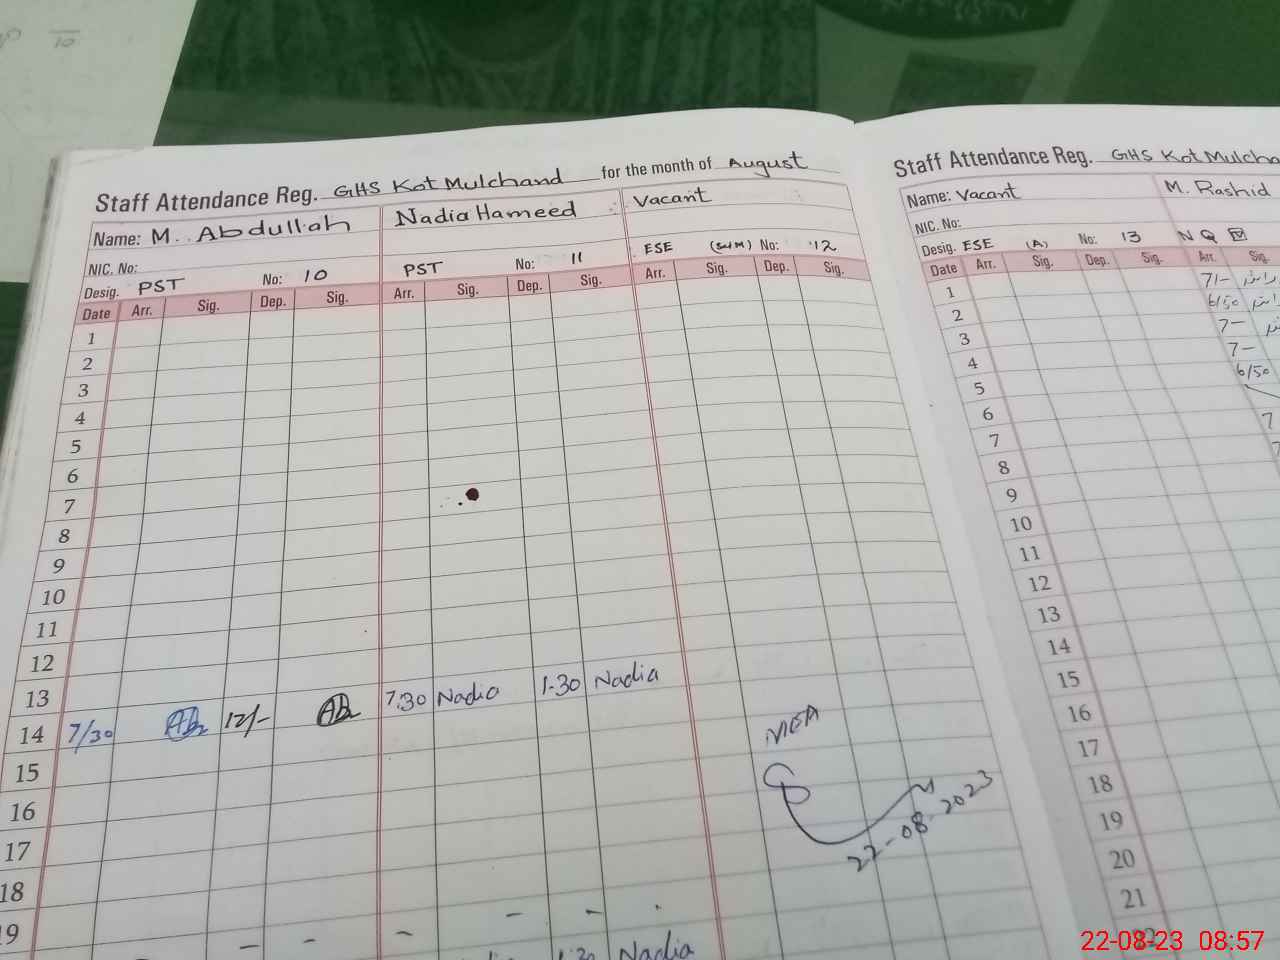 10
Staff Attendance Reg. GHS Kot Mulchand for the month of August
Name: M. Abdullah Nadia Hameed Vacant
NIC. No:
Desig. PST No: 10 PST No: 11 ESE (Sci/M) No: 12
Date Arr. Sig. Dep. Sig. Arr. Sig. Dep. Sig. Arr. Sig. Dep. Sig.
1
2
3
4
5
6
7
8
9
10
11
12
13
14 7/30 12/- 7:30 Nadia 1-30 Nadia
15
16
17
18
19
1:30 Nadia
MEA
22-08-2023
Staff Attendance Reg. GHS Kot Mulcha
Name: Vacant M. Rashid
NIC. No:
Desig. ESE (A) No: 13 N Q
Date Arr. Sig. Dep. Sig. Arr. Sig.
1 7/-
2 6/50
3 7-
4 7-
5 6/50
6
7 7
8
9
10
11
12
13
14
15
16
17
18
19
20
21
22
22-08-23 08:57